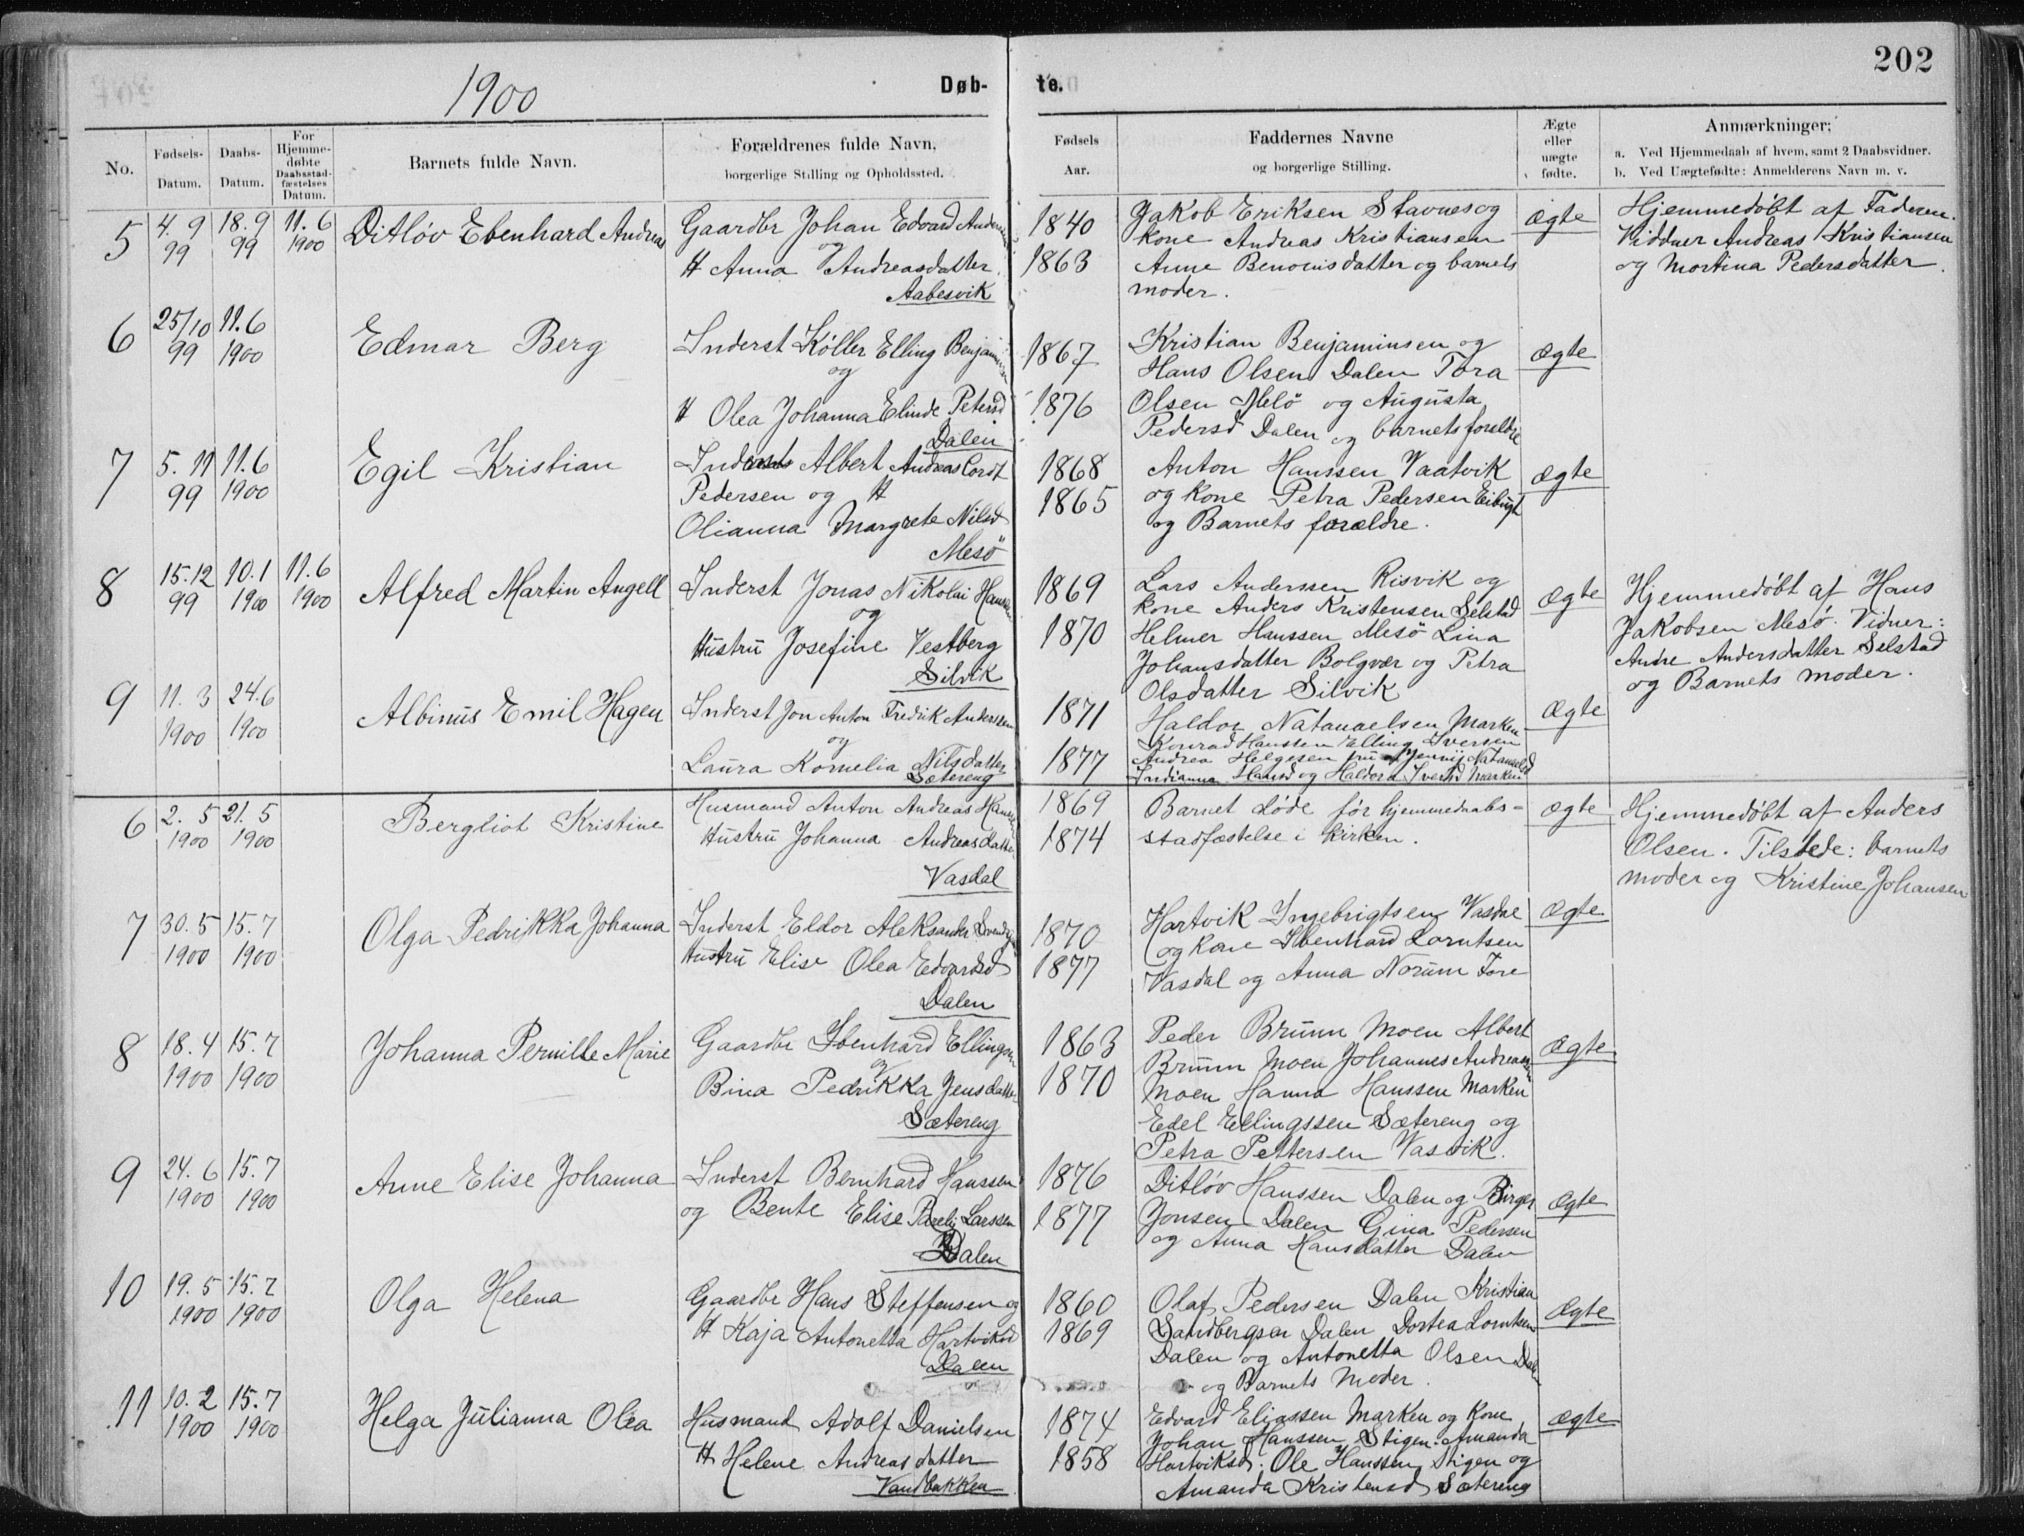 202
1900
Døb-
te.
No.
Fødsels-
Datum.
Daabs-
Datum.
For
Hjemme-
døbte
Daabsstad-
fæstelses
Datum.
Barnets fulde Navn.
Forældrenes fulde Navn,
borgerlige Stilling og Opholdssted.
Fødsels
Aar.
Faddernes Navne
og borgerlige Stilling.
Ægte
eller
uægte
fødte.
Anmærkninger:
a. Ved Hjemmedaab af hvem, samt 2 Daabsvidner.
b. Ved Uægtefødte: Anmelderens Navn m. v.
5
4. 9
99
18. 9
99
11. 6
1900
Ditløv Ebenhard Andreas
Gaardbr Johan Edvard Andersen
og
H Anna Andreasdatter
Aabesvik
1840
1863
Jakob Eriksen Stavnes og
kone Andreas Kristiansen
Anne Benonisdatter og barnets
moder.
Ægte
Hjemmedøbt af Faderen.
Viddner Andreas Kristiansen
og Martina Pedersdatter.
6
25/10
99
11. 6
1900
Edmar Berg
Inderst Køller Elling Benjaminsen
og
H Olea Johanna Elinde Petersd
Dalen
1867
1876
Kristian Benjaminsen og
Hans Olsen Dalen Tora
Olsen Melö og Augusta
Pedersd Dalen og barnets foreldre
Ægte
7
5. 11
99
11. 6
1900
Egil Kristian
Inderst Albert Andreas Cordt
Pedersen og H
Olianna Margrete Nilsd
Mesö
1868
1865
Anton Hanssen Vaatvik
og kone Petra Pedersen
og Barnets forældre.
Ægte
8
15. 12
99
10. 1
1900
11. 6
1900
Alfred Martin Angell
Inderst Jonas Nikolai Hanssen
og
Hustru Josefine Vestberg
Silvik
1869
1870
Lars Anderssen Risvik og
kone Anders Kristensen Selstad
Helmer Hanssen Mesö Lina
Johansdatter Bolgvær og Petra
Olsdatter Silvik
Ægte
Hjemmedøbt af Hans
Jakobsen Mesö. Vidner:
Andre Andersdatter Selstad
og Barnets moder.
9
11. 3
1900
24. 6
1900
Albinus Emil Hagen
Inderst Jon Anton Fredrik Anderssen
og
Laura Kornelia Nilsdatter
Sætereng
1871
1877
Haldor Natanaelsen Marken
Konrad Hanssen Elling Iversen
Andrea Helgesen Jenny Natanaelsd
Indianna Hansd og Haldora Iversd Marken
Ægte
6
2. 5
1900
21. 5
1900
Bergliot Kristine
Husmand Anton Andreas Hanssen
Hustru Johanna Andreasdatter
Vasdal
1869
1874
Barnet døde før hjemmedaabs-
stadfæstelse i kirken.
Ægte
Hjemmedøbt af Anders
Olsen. Tilstede: barnets
moder og Kristine Johansen
7
30. 5
1900
15. 7
1900
Olga Pedrikka Johanna
Inderst Eldor Aleksander
Hustru Elise Olea Edvardsd
Dalen
1870
1877
Hartvik Ingebrigtsen Vasdal
og kone Ibenhard Lorntsen
Vasdal og Anna Norum Fore
Ægte
8
18. 4
1900
15. 7
1900
Johanna Pernille Marie
Gaardbr Ibenhard Ellingsen
og
Bina Pedrikka Jensdatter
Sætereng
1863
1870
Peder Brunn Moen Albert
Brunn Moen Johannes Andreassen
Moen Hanna Hanssen Marken
Edel Ellingssen Sætereng og
Petra Pettersen Vasvik.
Ægte
9
24. 6
1900
15. 7
1900
Anne Elise Johanna
Inderst Bernhard Hanssen
og Bente Elise Parelj Larssen
Dalen
1876
1877
Ditløv Hanssen Dalen og Birger
Jonsen Dalen Gina Pedersen
og Anna Hansdatter Dalen
Ægte
10
19. 5
1900
15. 7
1900
Olga Helena
Gaardbr Hans Steffensen og
H Kaja Antonetta Hartviksd
Dalen
1860
1869
Olaf Pedersen Dalen Kristian
Sandbergsen Dalen Dortea Lorntsen
Dalen og Antonetta Olsen Dalen
og Barnets Moder.
Ægte
11
10. 2
1900
15. 7
1900
Helga Julianna Olea
Husmand Adolf Danielsen
H Helene Andreasdatter
Vandbakken
1874
1858
Edvard Eliassen Marken og kone
Johan Hanssen Stigen. Amanda
Hartviksd. Ole Hanssen Stigen og
Amanda Kristensd Sætereng
Ægte